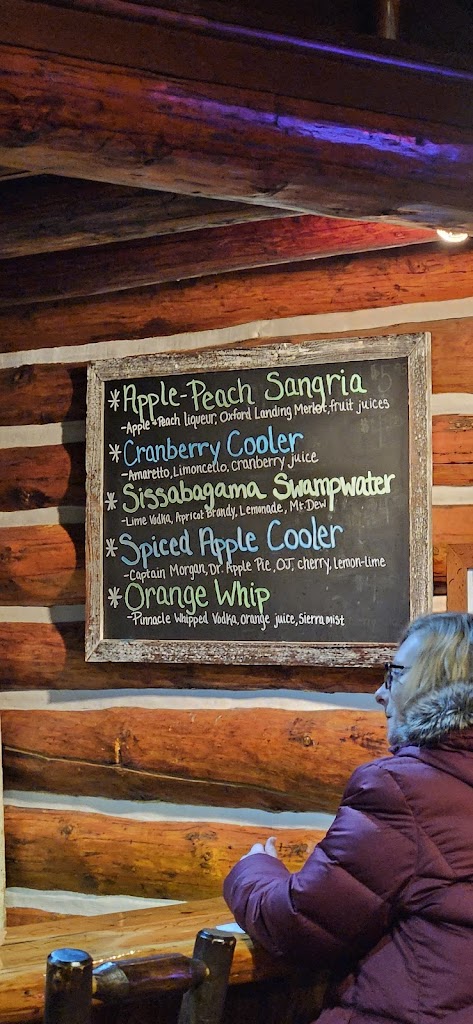 *Apple-Peach Sangria
-Apple + Peach liqueur, Oxford Landing Merlot, fruit juices
*Cranberry Cooler
-Amaretto, Limoncello, cranberry juice
*Sissabagama Swampwater
-Lime Vodka, Apricot Brandy, Lemonade, Mt. Dew
*Spiced Apple Cooler
-Captain Morgan, Dr. Apple Pie, OJ, cherry, lemon-lime
*Orange Whip
-Pinnacle Whipped Vodka, orange juice, Sierra mist